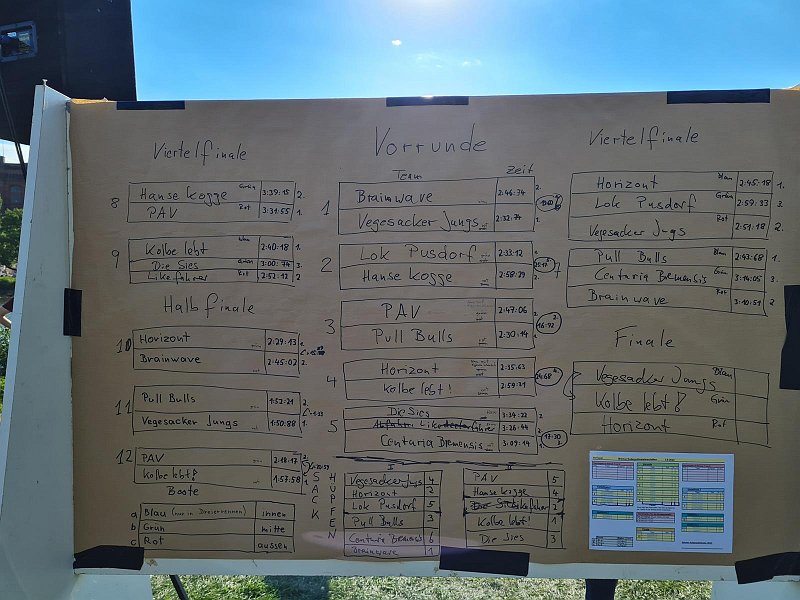 Viertelfinale
8
Hanse Kogge Grün 3:39:15 2.
PAV Rot 3:31:55 1.
9
Kolbe lebt Blau 2:40:18 1.
Die Sies Grün 3:00:74 3.
Likefahrer Rot 2:52:12 2
Halbfinale
10
Horizont 2:29:13 1.
Brainwave 2:45:02 2.
11
Pull Bulls 1:52:21 2.
Vegesacker Jungs 1:50:88 1.
12
PAV 2:18:17 2
Kolbe lebt! 1:57:58 1.
Boote
a Blau (nur in Dreierrennen) innen
b Grün mitte
c Rot aussen
Vorrunde
Team Zeit
1
Brainwave 2:46:74 2.
Vegesacker Jungs 2:32:74 1.
2
Lok Pusdorf 2:33:12
Hanse Kogge 2:58:29
3
PAV 2:47:06 2.
Pull Bulls 2:30:14 1.
16:92
4
Horizont 2:35:63
Kolbe lebt! 2:59:31
5
Die Sies 3:34:22
Likedeeler fahrer 3:26:44
Centuria Bremensis 3:09:14
17:30
SACK HÜPFEN
I
Vegesacker Jugs 4
Horizont 2
Lok Pusdorf 5
Pull Bulls 3
Centuria Bremensis 6
Brainwave 1
II
PAV 5
Hanse Kogge 4
Die Sies Likefahrer 2
Kolbe lebt! 1
Die Sies 3
Viertelfinale
Horizont Blau 2:45:18 1.
Lok Pusdorf Grün 2:59:33 3.
Vegesacker Jugs Rot 2:51:18 2.
7
Pull Bulls Blau 2:43:68 1.
Centuria Bremensis Grün 3:14:05 3.
Brainwave Rot 3:10:51 2.
Finale
Vegesacker Jungs Blau
Kolbe lebt! Grün
Horizont Rot